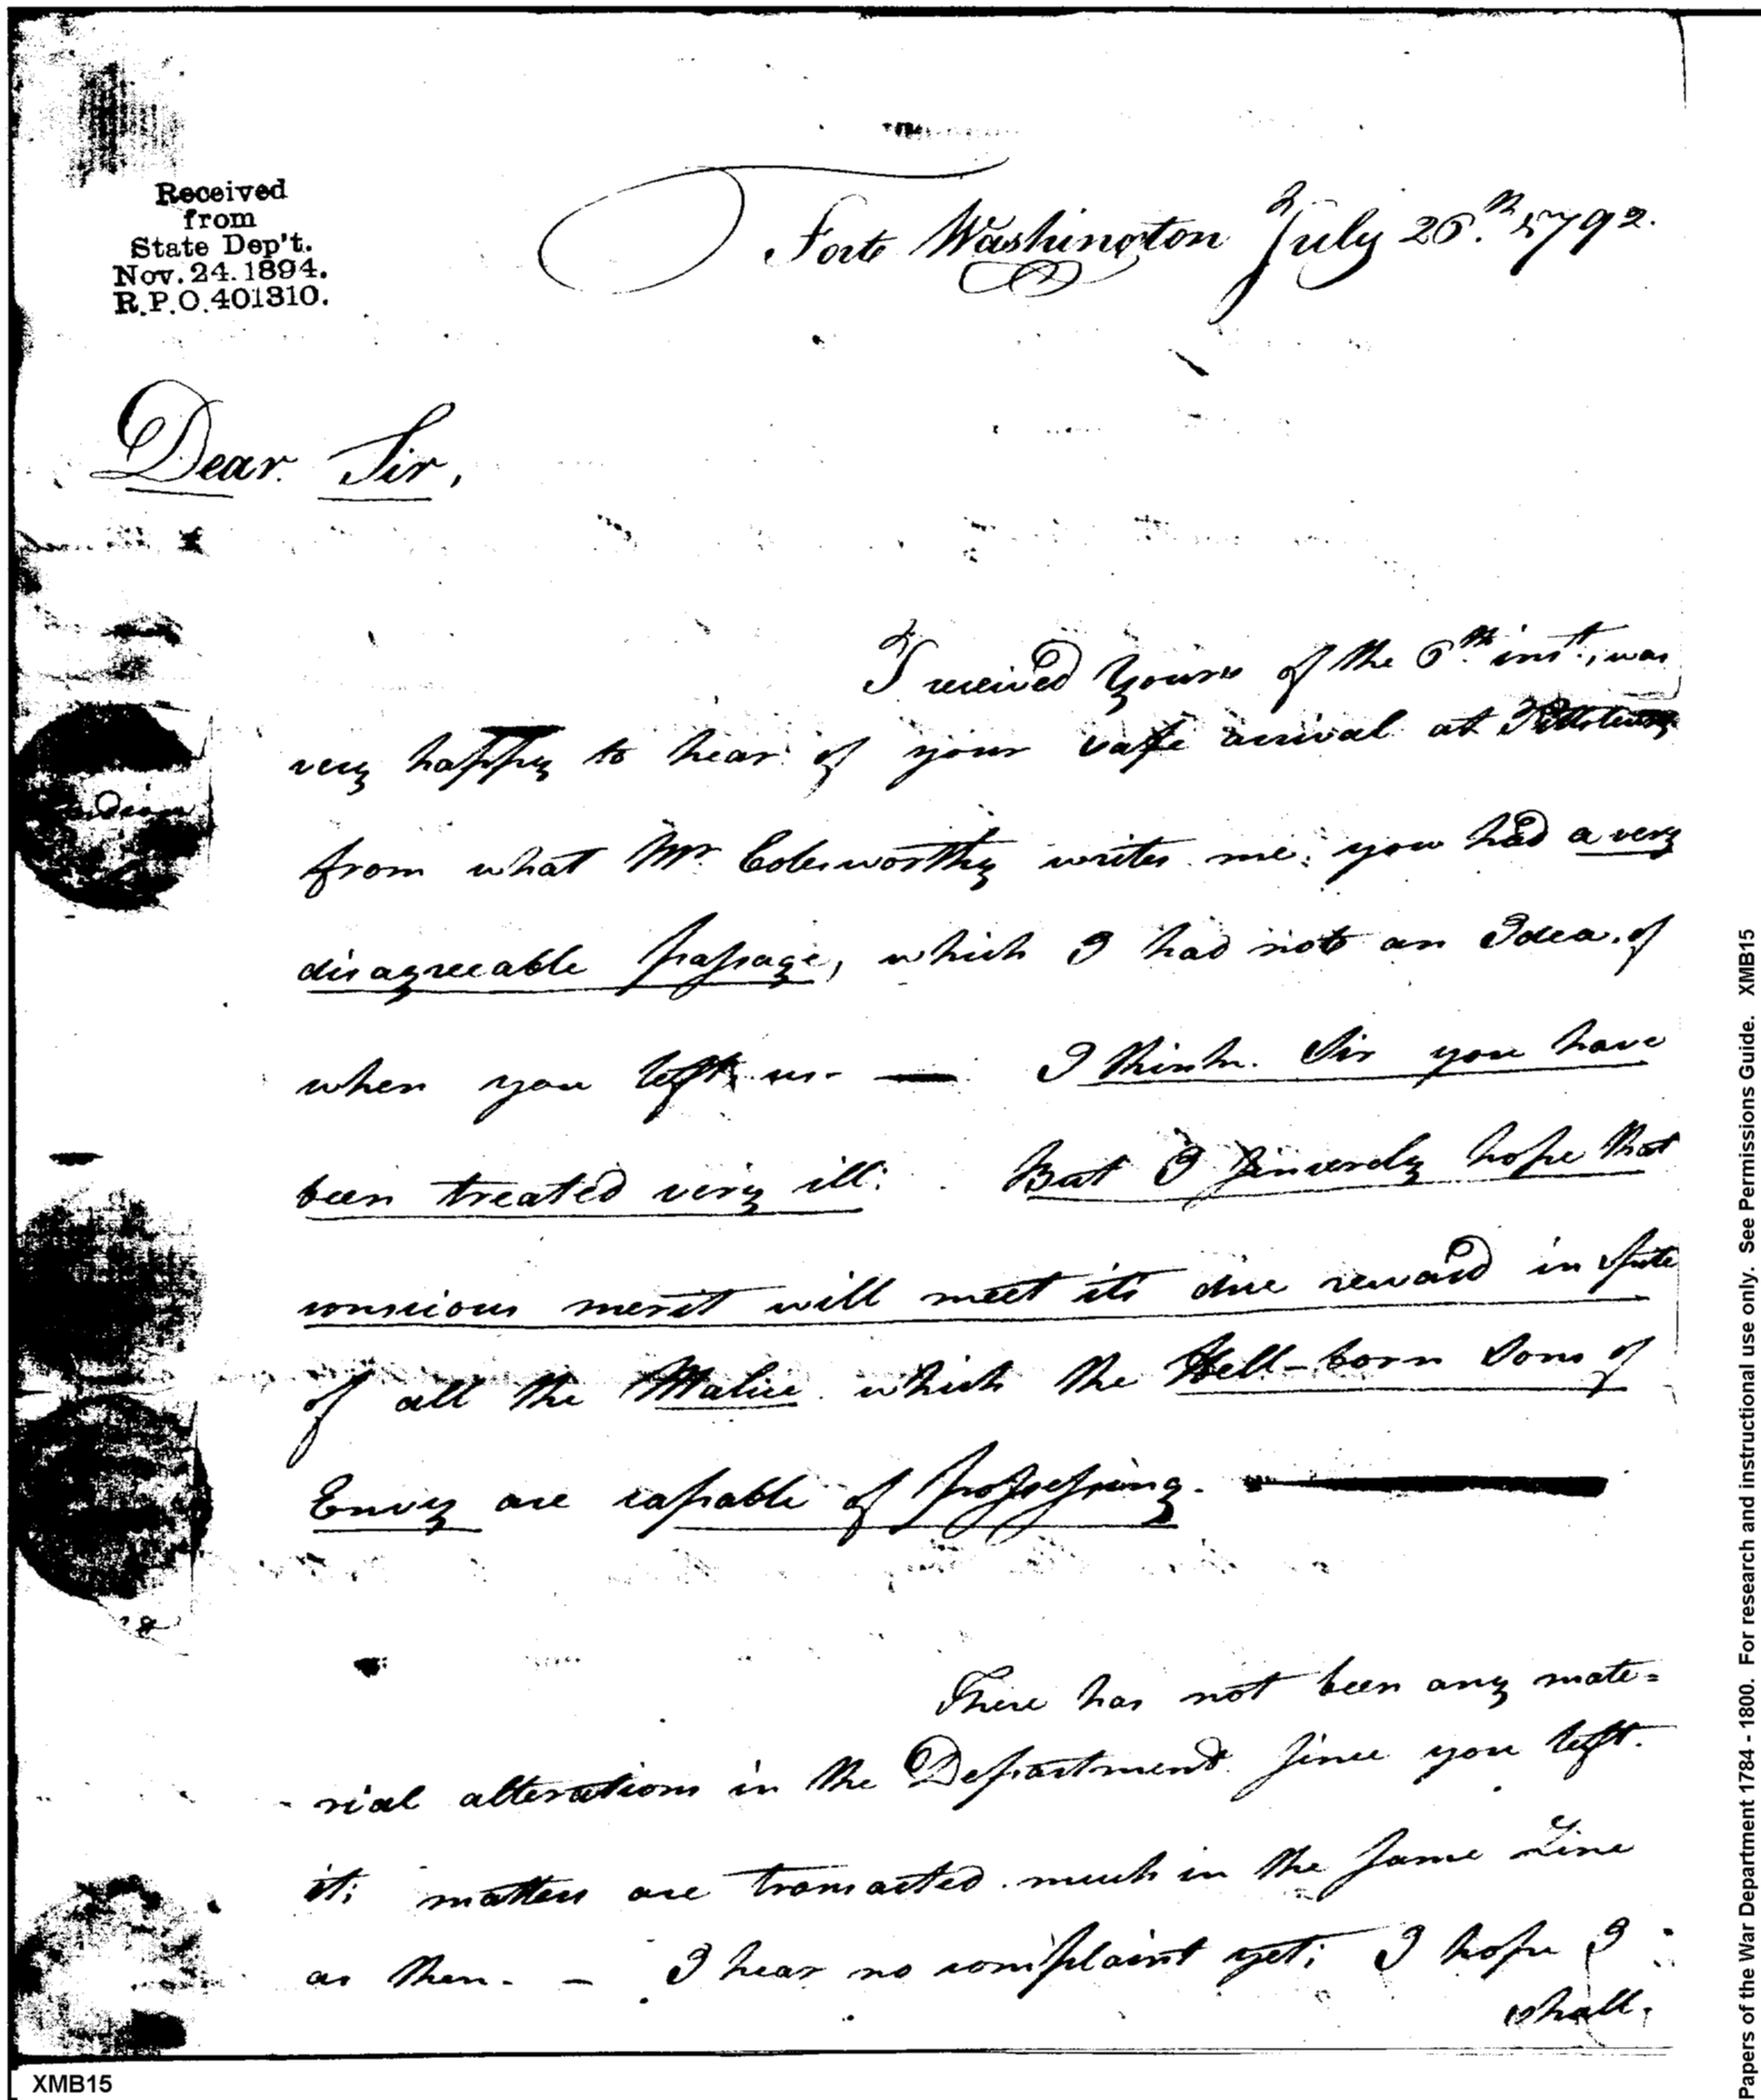 Received
from
State Dep't.
Nov. 24. 1894.
R.P.O. 401310.
Forte Washington July 26.th 1792.
Dear Sir,
I received Yours of the 6.th inst., was
very happy to hear of your safe arrival at Pittsburg
from what Mr. Colesworthy writes me: you had a very
disagreeable passage, which I had not an Idea of
when you left us — I think Sir you have
been treated very ill: But I sincerely hope that
conscious merit will meet its due reward in spite
of all the Malice which the Hell-born Sons of
Envy are capable of possessing.
There has not been any mate=
rial alterations in the Department since you left
it; matters are transacted much in the same Line
as then. — I hear no complaint yet; I hope I
shall.
XMB15
Papers of the War Department 1784 - 1800. For research and instructional use only. See Permissions Guide. XMB15